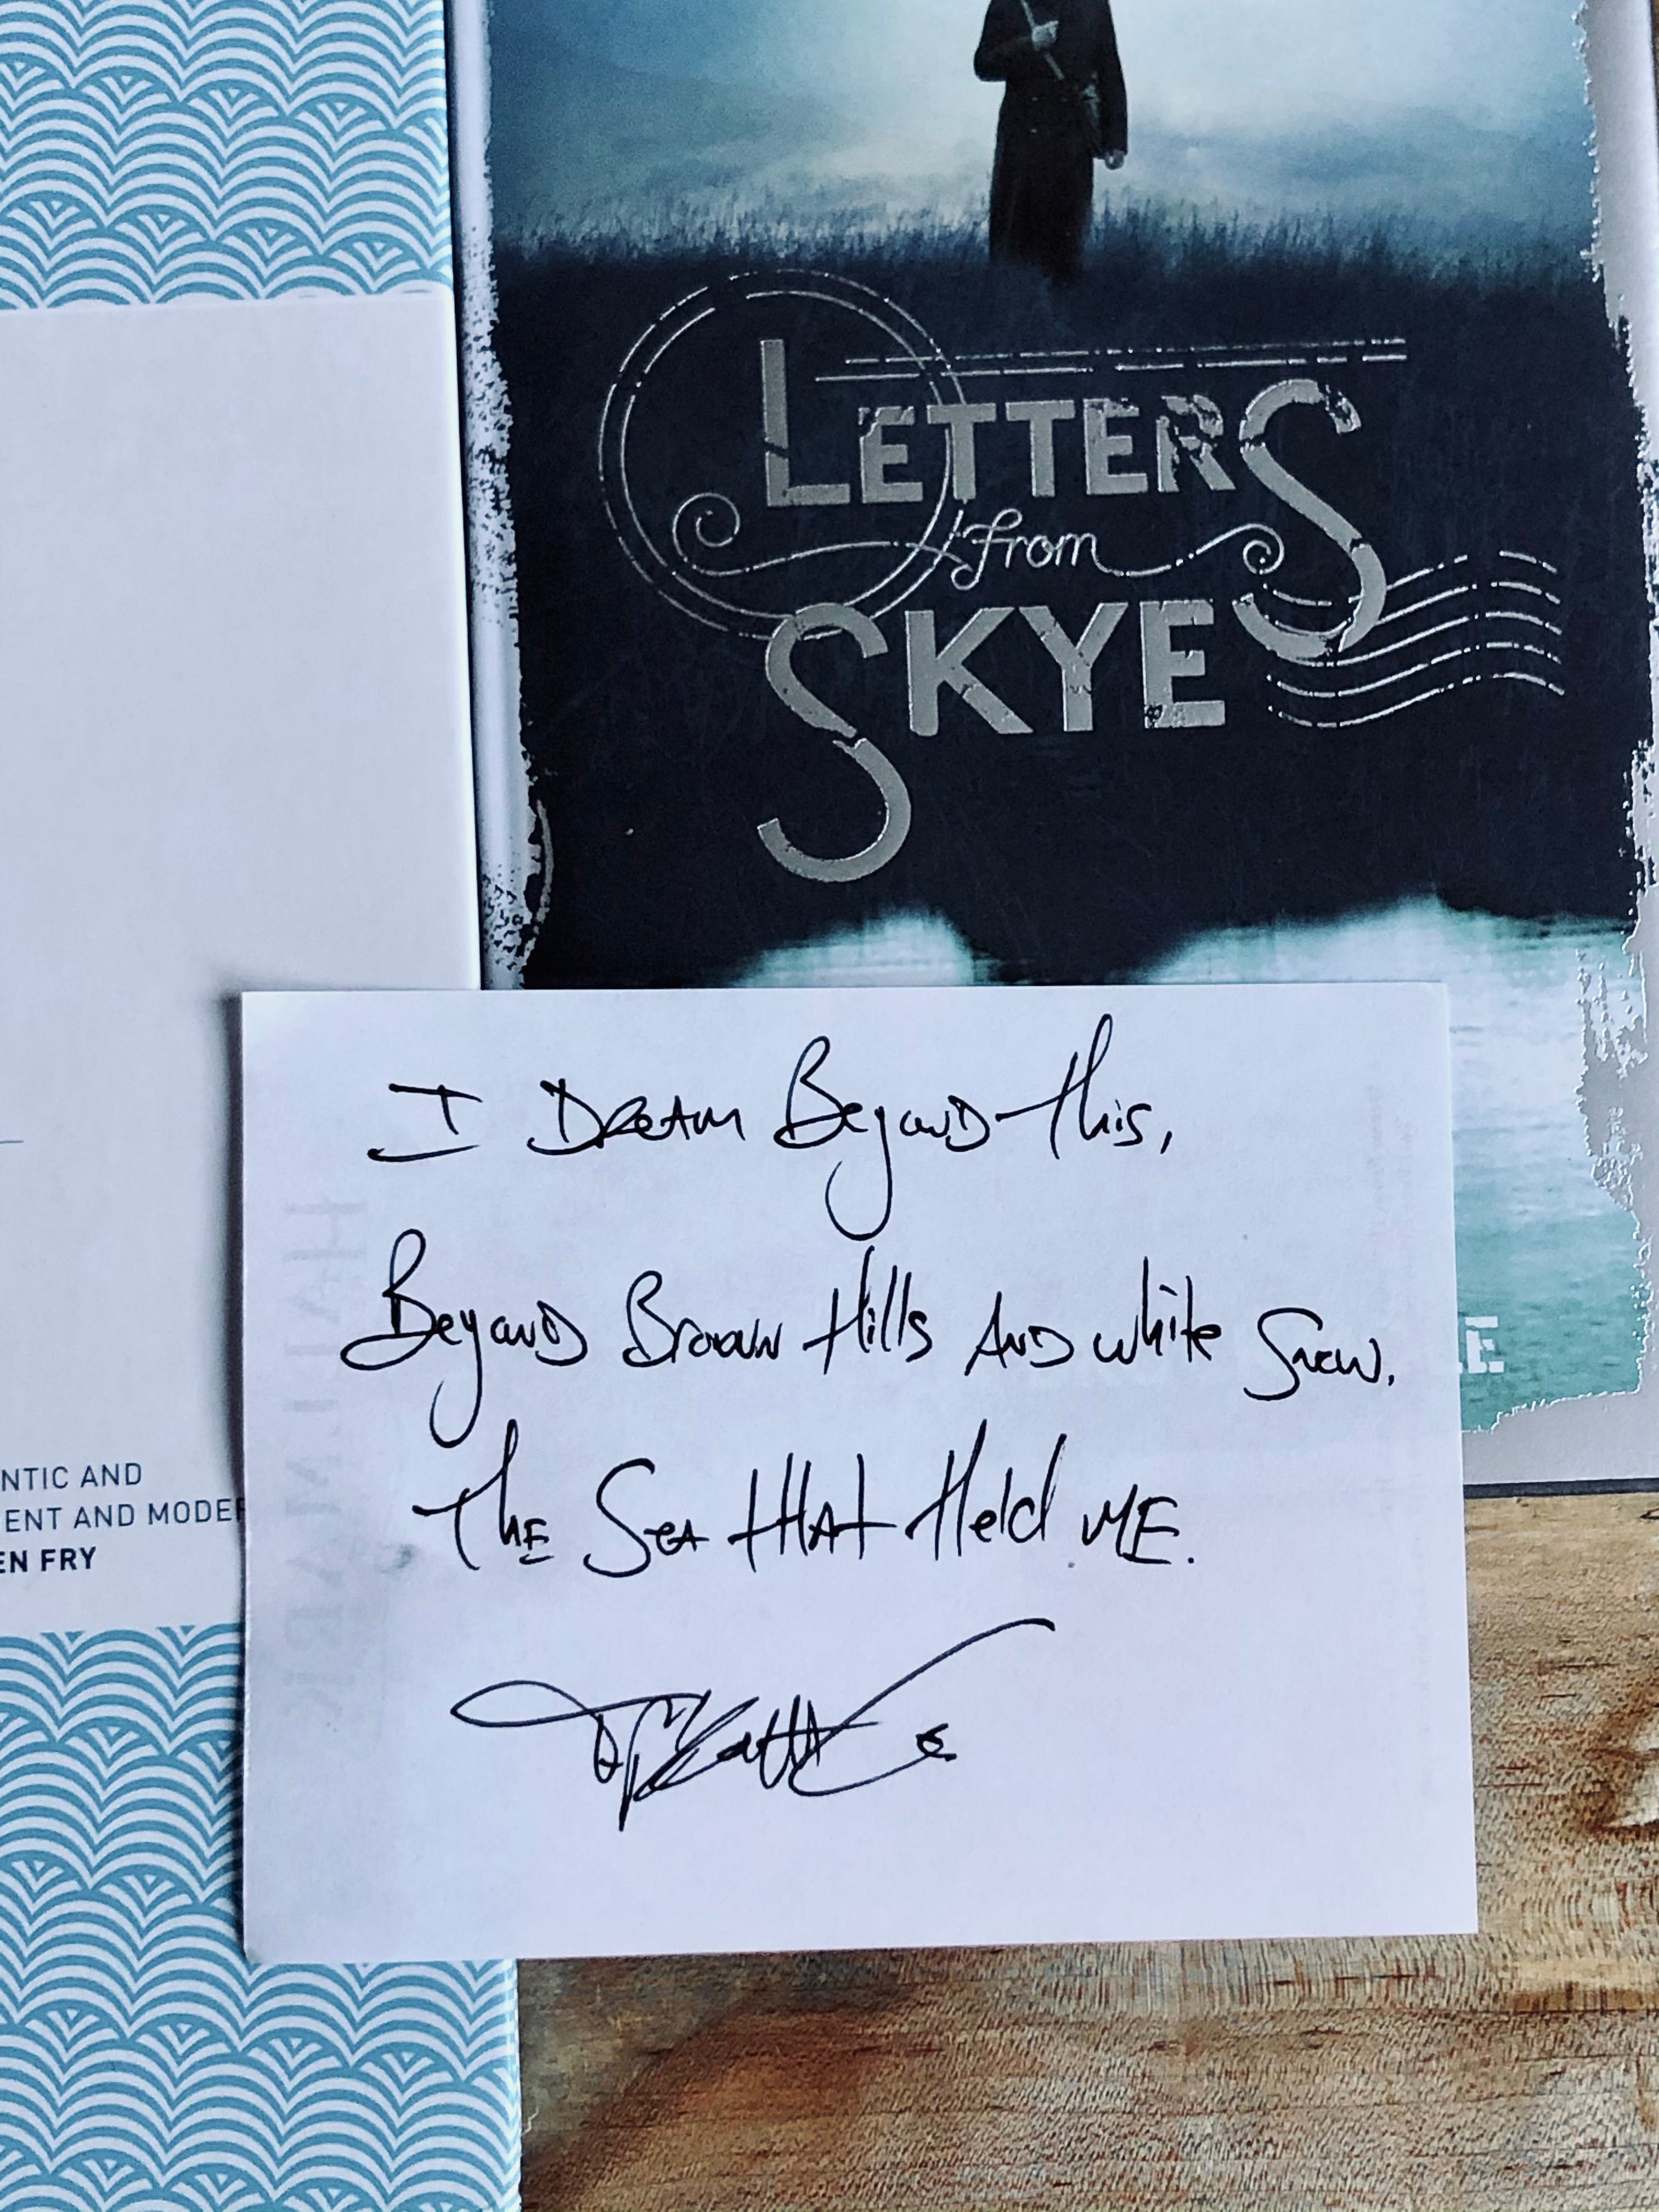 LETTERS
from
SKYE
I DREAM BEYOND This,
BEYOND BROWN Hills AND white Snow.
The SEA tHAt Held ME.
NTIC AND
ENT AND MODER
EN FRY
E